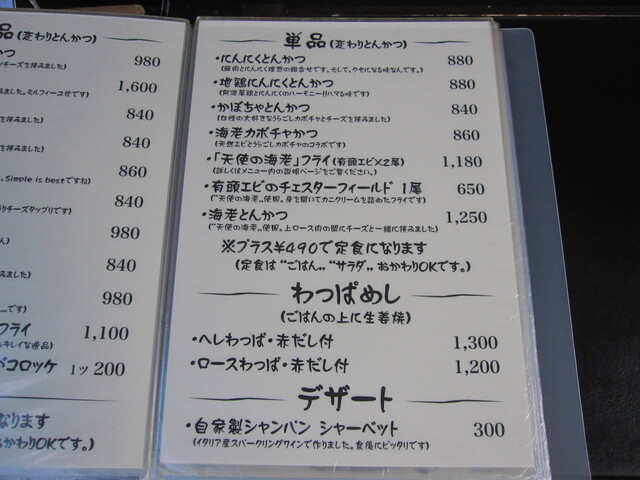 品(変わりとんかつ)
かつ 980
チーズを挟みました)
1,600
ました。ミルフィーユ仕立です)
840
を挟みました)
840
を挟みました)
860
。Simple is bestですね)
840
りチーズタップリです)
980
ん)
840
挟みました)
980
...です)
フライ 1,100
キレイな逸品)
バコロッケ 1ツ 200
なります
おかわりOKです。)
単品(変わりとんかつ)
・にんにくとんかつ 880
(豚肉とにんにく理想の組合せです。そして、クセになる味なんです。)
・地鶏にんにくとんかつ 880
(阿波尾鶏とにんにくのハーモニー!!ハマる味です)
・かぼちゃとんかつ 840
(女性の大好きなうらごしカボチャとチーズを挟みました)
・海老カボチャかつ 860
(天然エビとうらごしカボチャのコラボです)
・「天使の海老」フライ(有頭エビ×2尾) 1,180
(詳しくはメニュー内の説明ページをご覧ください。)
・有頭エビのチェスターフィールド 1尾 650
(“天使の海老„使用。身を開いてカニクリームを詰めたフライです)
・海老とんかつ 1,250
(“天使の海老„使用。上ロース肉の間にチーズと一緒に挟みました)
※プラス¥490で定食になります
(定食は “ごはん„ “サラダ„ おかわりOKです。)
わっぱめし
(ごはんの上に生姜焼)
・ヘレわっぱ・赤だし付 1,300
・ロースわっぱ・赤だし付 1,200
デザート
・自家製シャンパン シャーベット 300
(イタリア産スパークリングワインで作りました。食後にピッタリです)